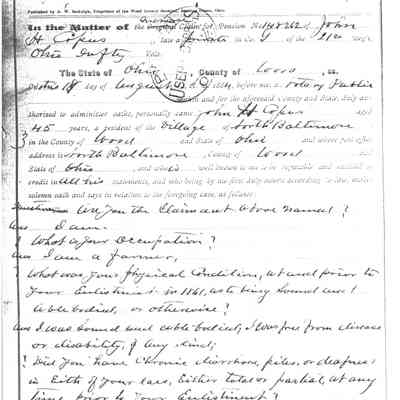 In the Matter of the Claim for Pension No. John
H Copus, late a Private in Co. of the 21st Reg't
Ohio Infty
The State of Ohio, County of Wood, ss.
day of August, before me a Notary Public
in and for the aforesaid county and State, duly au-
thorized to administer oaths, personally came John H Copus aged
45 years, a resident of the Village of North Baltimore
in the County of Wood and State of Ohio and whose post office
address is North Baltimore, County of Wood
State of Ohio, and who is well known to me to be reputable and entitled to
credit in all his statements, and who being by me first duly sworn according to law, makes
solemn oath and says in relation to the foregoing case, as follows:
Question Are you the Claimant above named?
Ans I am.
? What is your Occupation?
Ans I am a farmer,
? What was your physical Condition, at and prior to
your Enlistment in 1861, as to being sound and
able bodied, or otherwise?
Ans I was sound and able bodied, I was free from disease
or disability, of any kind;
? Did you have Chronic diarrhoea, piles, or deafness
in Either of your ears, Either total or partial, at any
time prior to your Enlistment?